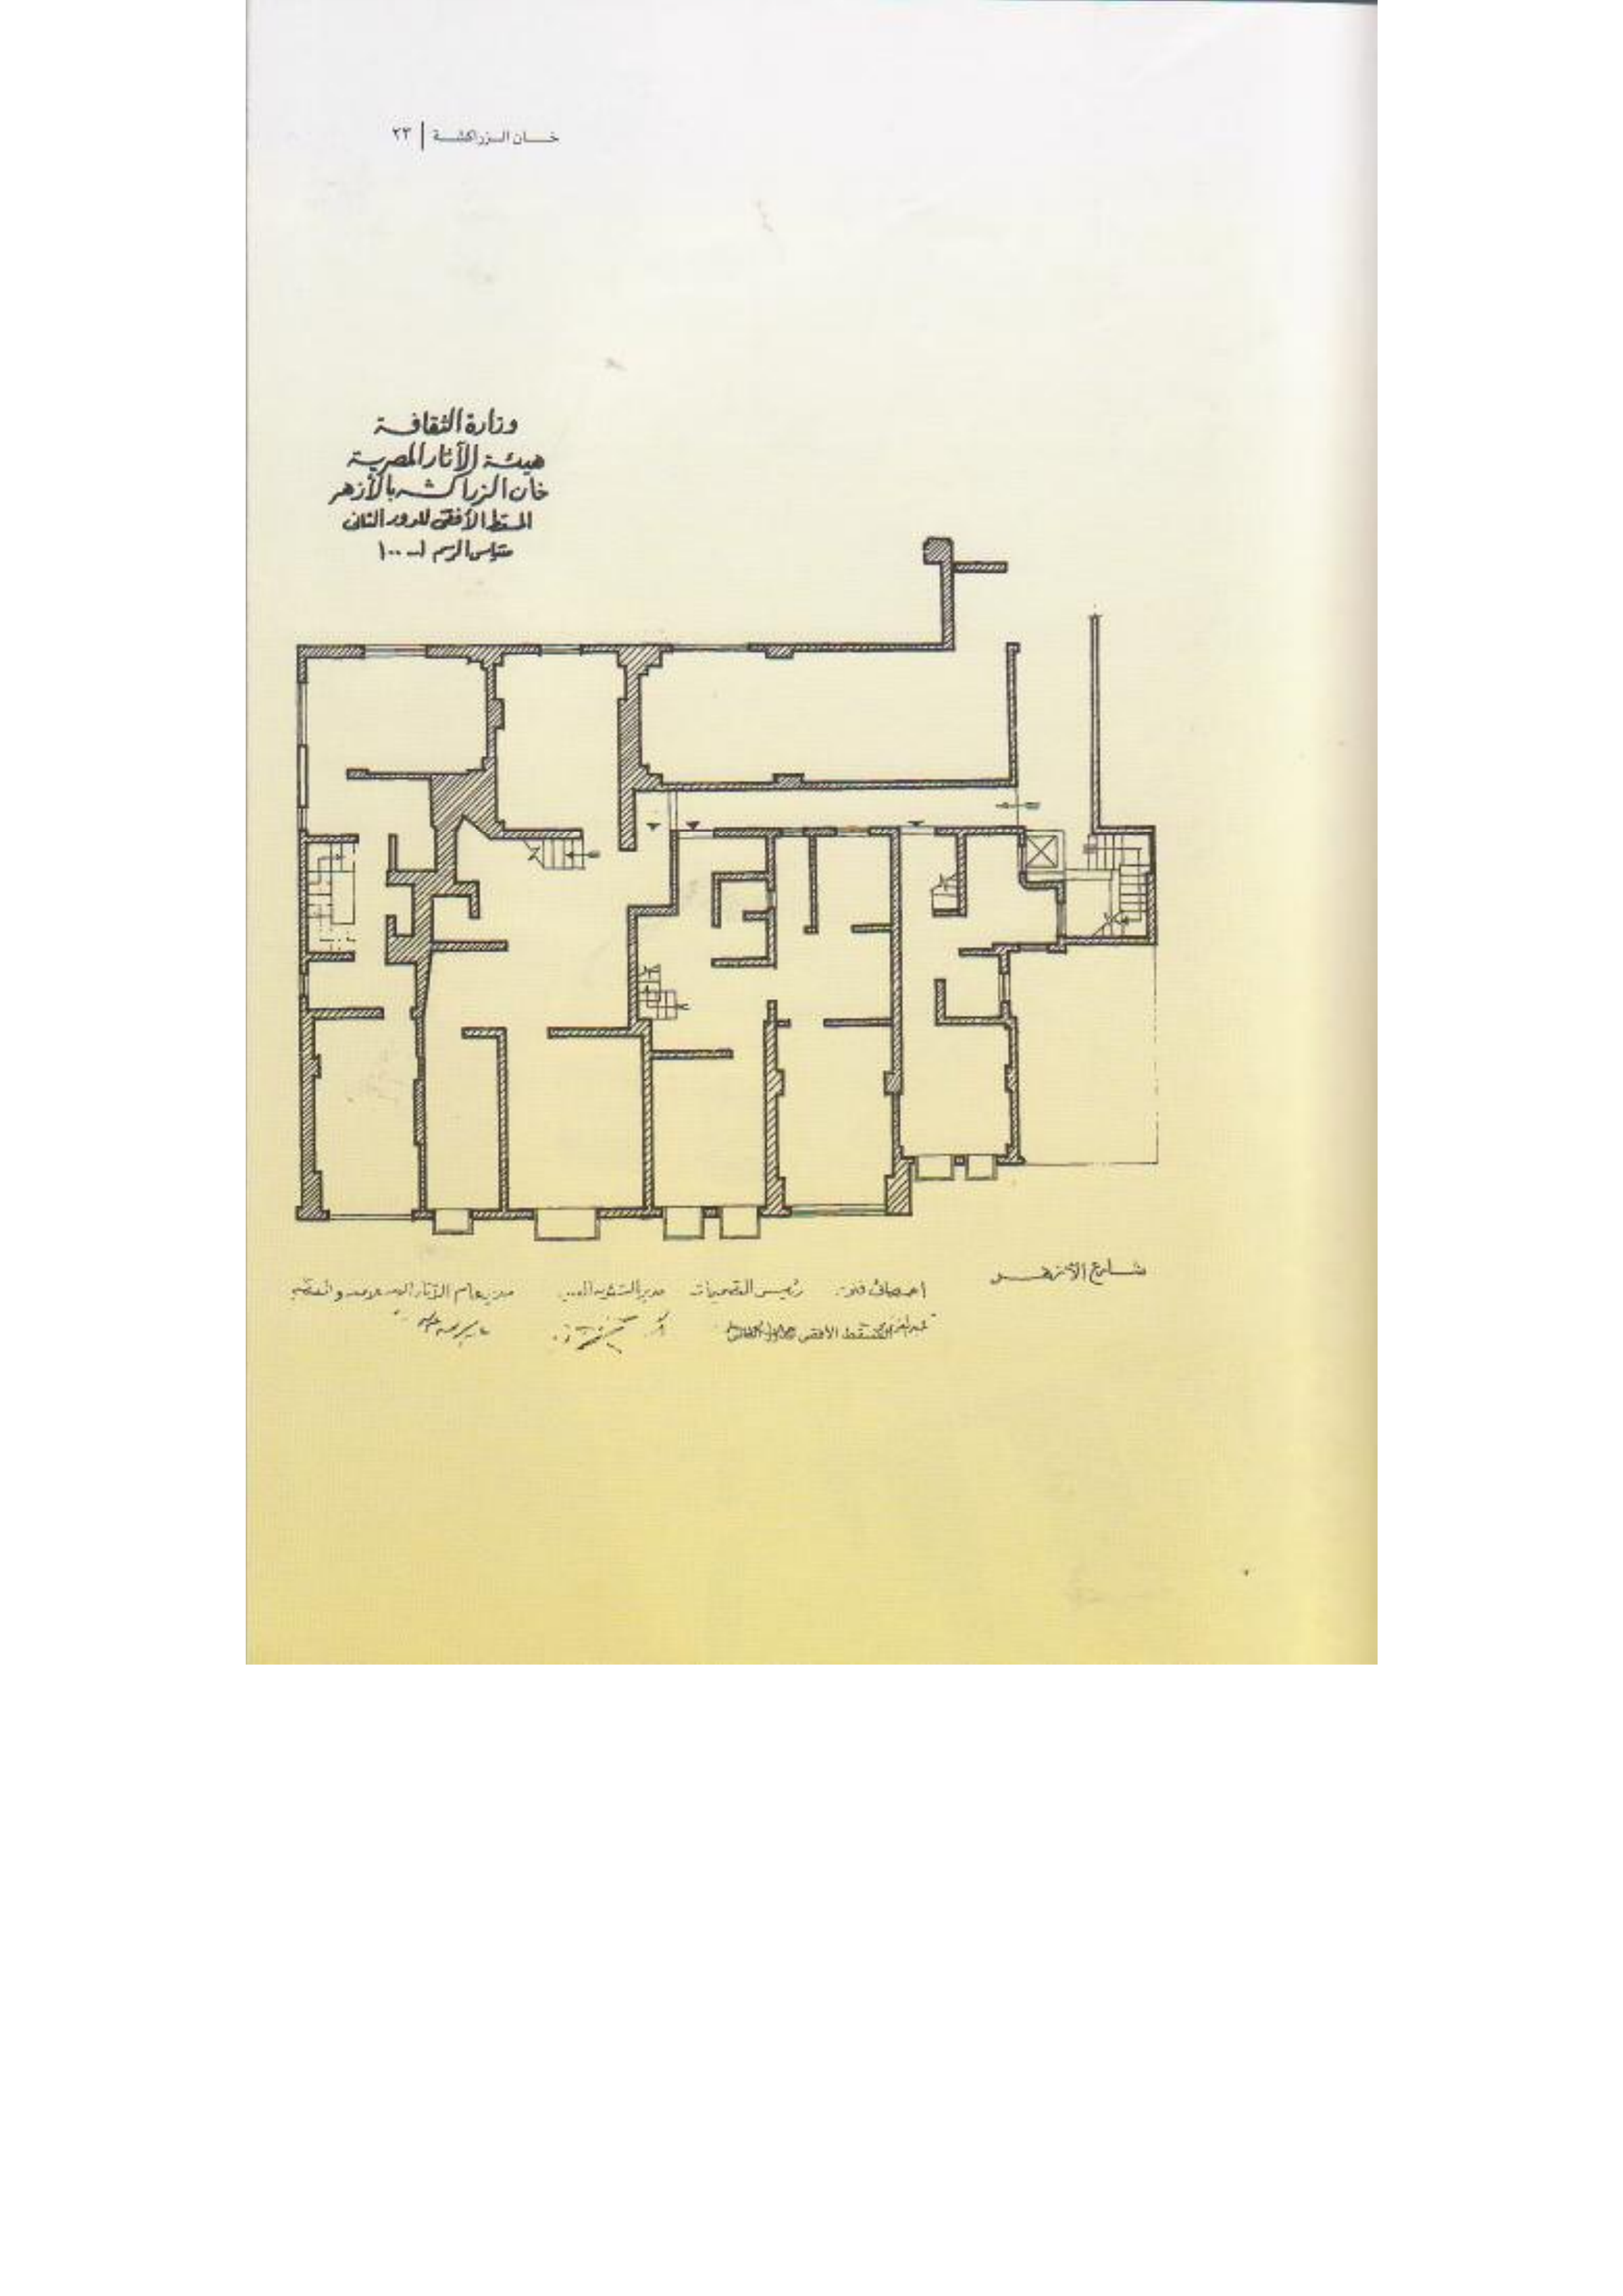 خان الزراكشة | ٢٣
وزارة الثقافة
هيئة الآثار المصرية
خان الزراكشه بالأزهر
المسقط الأفقى للدور الثانى
مقياس الرسم ١ــ١٠٠
شارع الأزهر
أخصائى فنى رئيس التصميمات مدير مدير عام الآثار
المسقط الأفقى